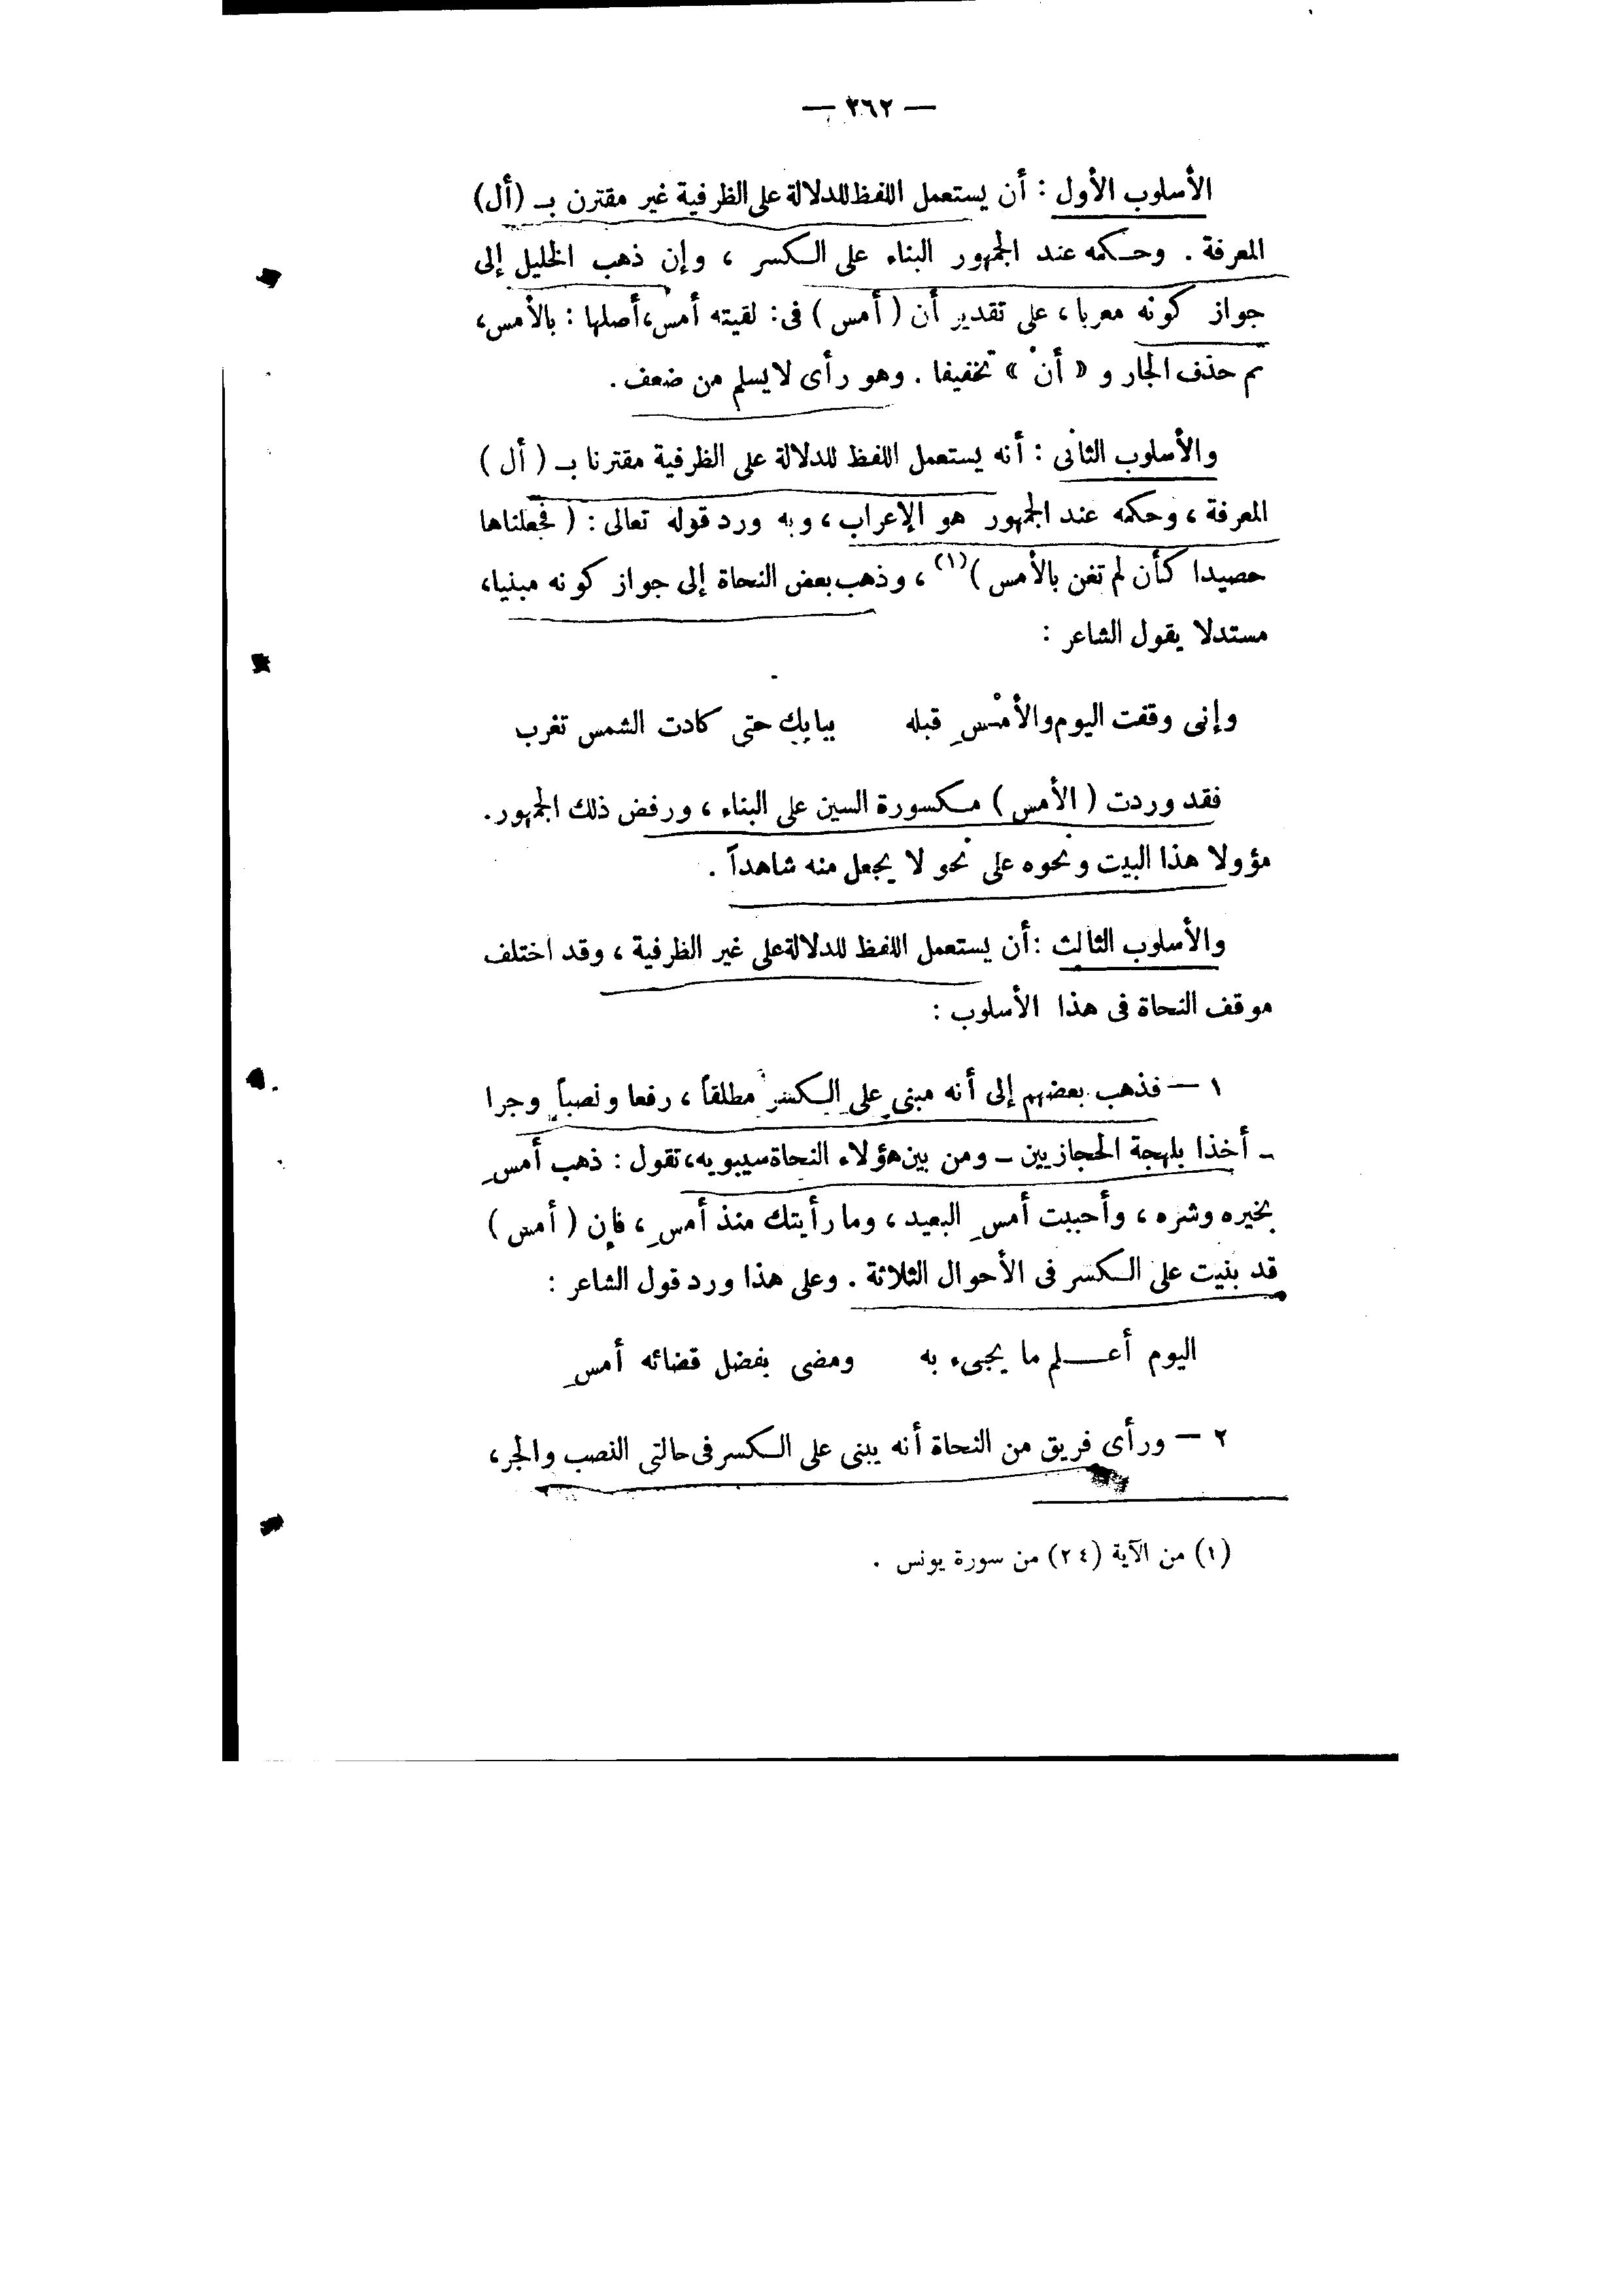 — ٣٦٢ —
الأسلوب الأول : أن يستعمل اللفظ للدلالة على الظرفية غير مقترن بـ (أل)
المعرفة . وحكمه عند الجمهور البناء على الكسر ، وإن ذهب الخليل إلى
جواز كونه معربا ، على تقدير أن ( أمس ) فى : لقيته أمس ، أصلها : بالأمس ،
ثم حذف الجار و « أن » تخفيفا . وهو رأى لا يسلم من ضعف .
والأسلوب الثانى : أنه يستعمل اللفظ للدلالة على الظرفية مقترنا بـ ( أل )
المعرفة ، وحكمه عند الجمهور هو الإعراب ، وبه ورد قوله تعالى : ( فجعلناها
حصيدا كأن لم تغن بالأمس )(١) ، وذهب بعض النحاة إلى جواز كونه مبنيا ،
مستدلا يقول الشاعر :
وإنى وقفت اليوم والأمْسِ قبله ببابك حتى كادت الشمس تغرب
فقد وردت ( الأمس ) مكسورة السين على البناء ، ورفض ذلك الجمهور .
مؤولا هذا البيت ونحوه على نحو لا يجعل منه شاهداً .
والأسلوب الثالث : أن يستعمل اللفظ للدلالة على غير الظرفية ، وقد اختلف
موقف النحاة فى هذا الأسلوب :
١ — فذهب بعضهم إلى أنه مبنى على الكسر مطلقاً ، رفعا ونصباً وجرا
ـ أخذا بلهجة الحجازيين ـ ومن بين هؤلاء النحاة سيبويه ، تقول : ذهب أمسِ
بخيره وشره ، وأحببت أمسِ البعيد ، وما رأيتك منذ أمسِ ، فإن ( أمس )
قد بنيت على الكسر فى الأحوال الثلاثة . وعلى هذا ورد قول الشاعر :
اليوم أعـــلم ما يجىء به ومضى بفضل قضائه أمسِ
٢ — ورأى فريق من النحاة أنه يبنى على الكسر فى حالتى النصب والجر ،
(١) من الآية (٢٤) من سورة يونس .